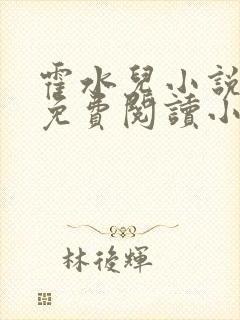 霍水兒小說
免費閱讀小
林後輝